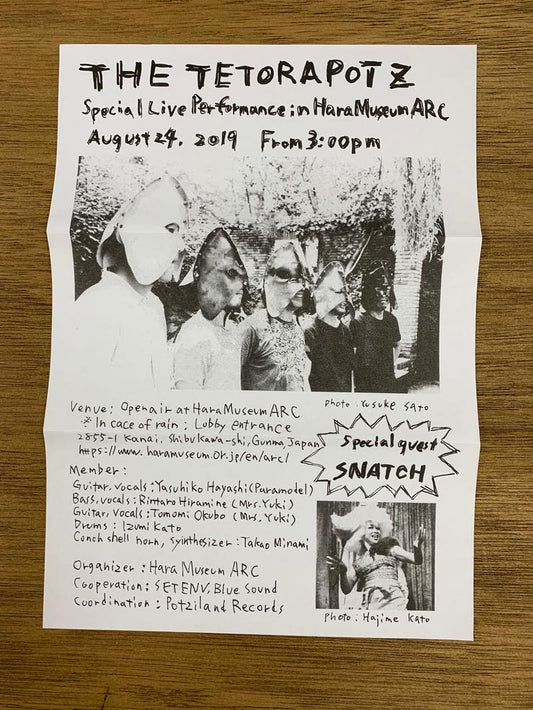 THE TETORAPOTZ
Special Live Performance in Hara Museum ARC
August 24. 2019 From 3:00pm
Venue: Openair at Hara Museum ARC
※ In cace of rain : Lobby entrance
2855-1 Kanai. Shibukawa-shi, Gunma, Japan
https://www.haramuseum.or.jp/en/arc/
Photo : Yusuke Sato
Special quest
SNATCH
Member:
Guitar. vocals : Yasuhiko Hayashi (Paramodel)
Bass. vocals : Rintaro Hiramine (Mrs. Yuki)
Guitar. Vocals : Tomomi Okubo (Mrs. Yuki)
Drums : Izumi Kato
Conch shell horn, Syinthesizer : Takao Minami
Organizer : Hara Museum ARC
Cooperation : SETENV, Blue Sound
Coordination : Potziland Records
Photo : Hajime Kato